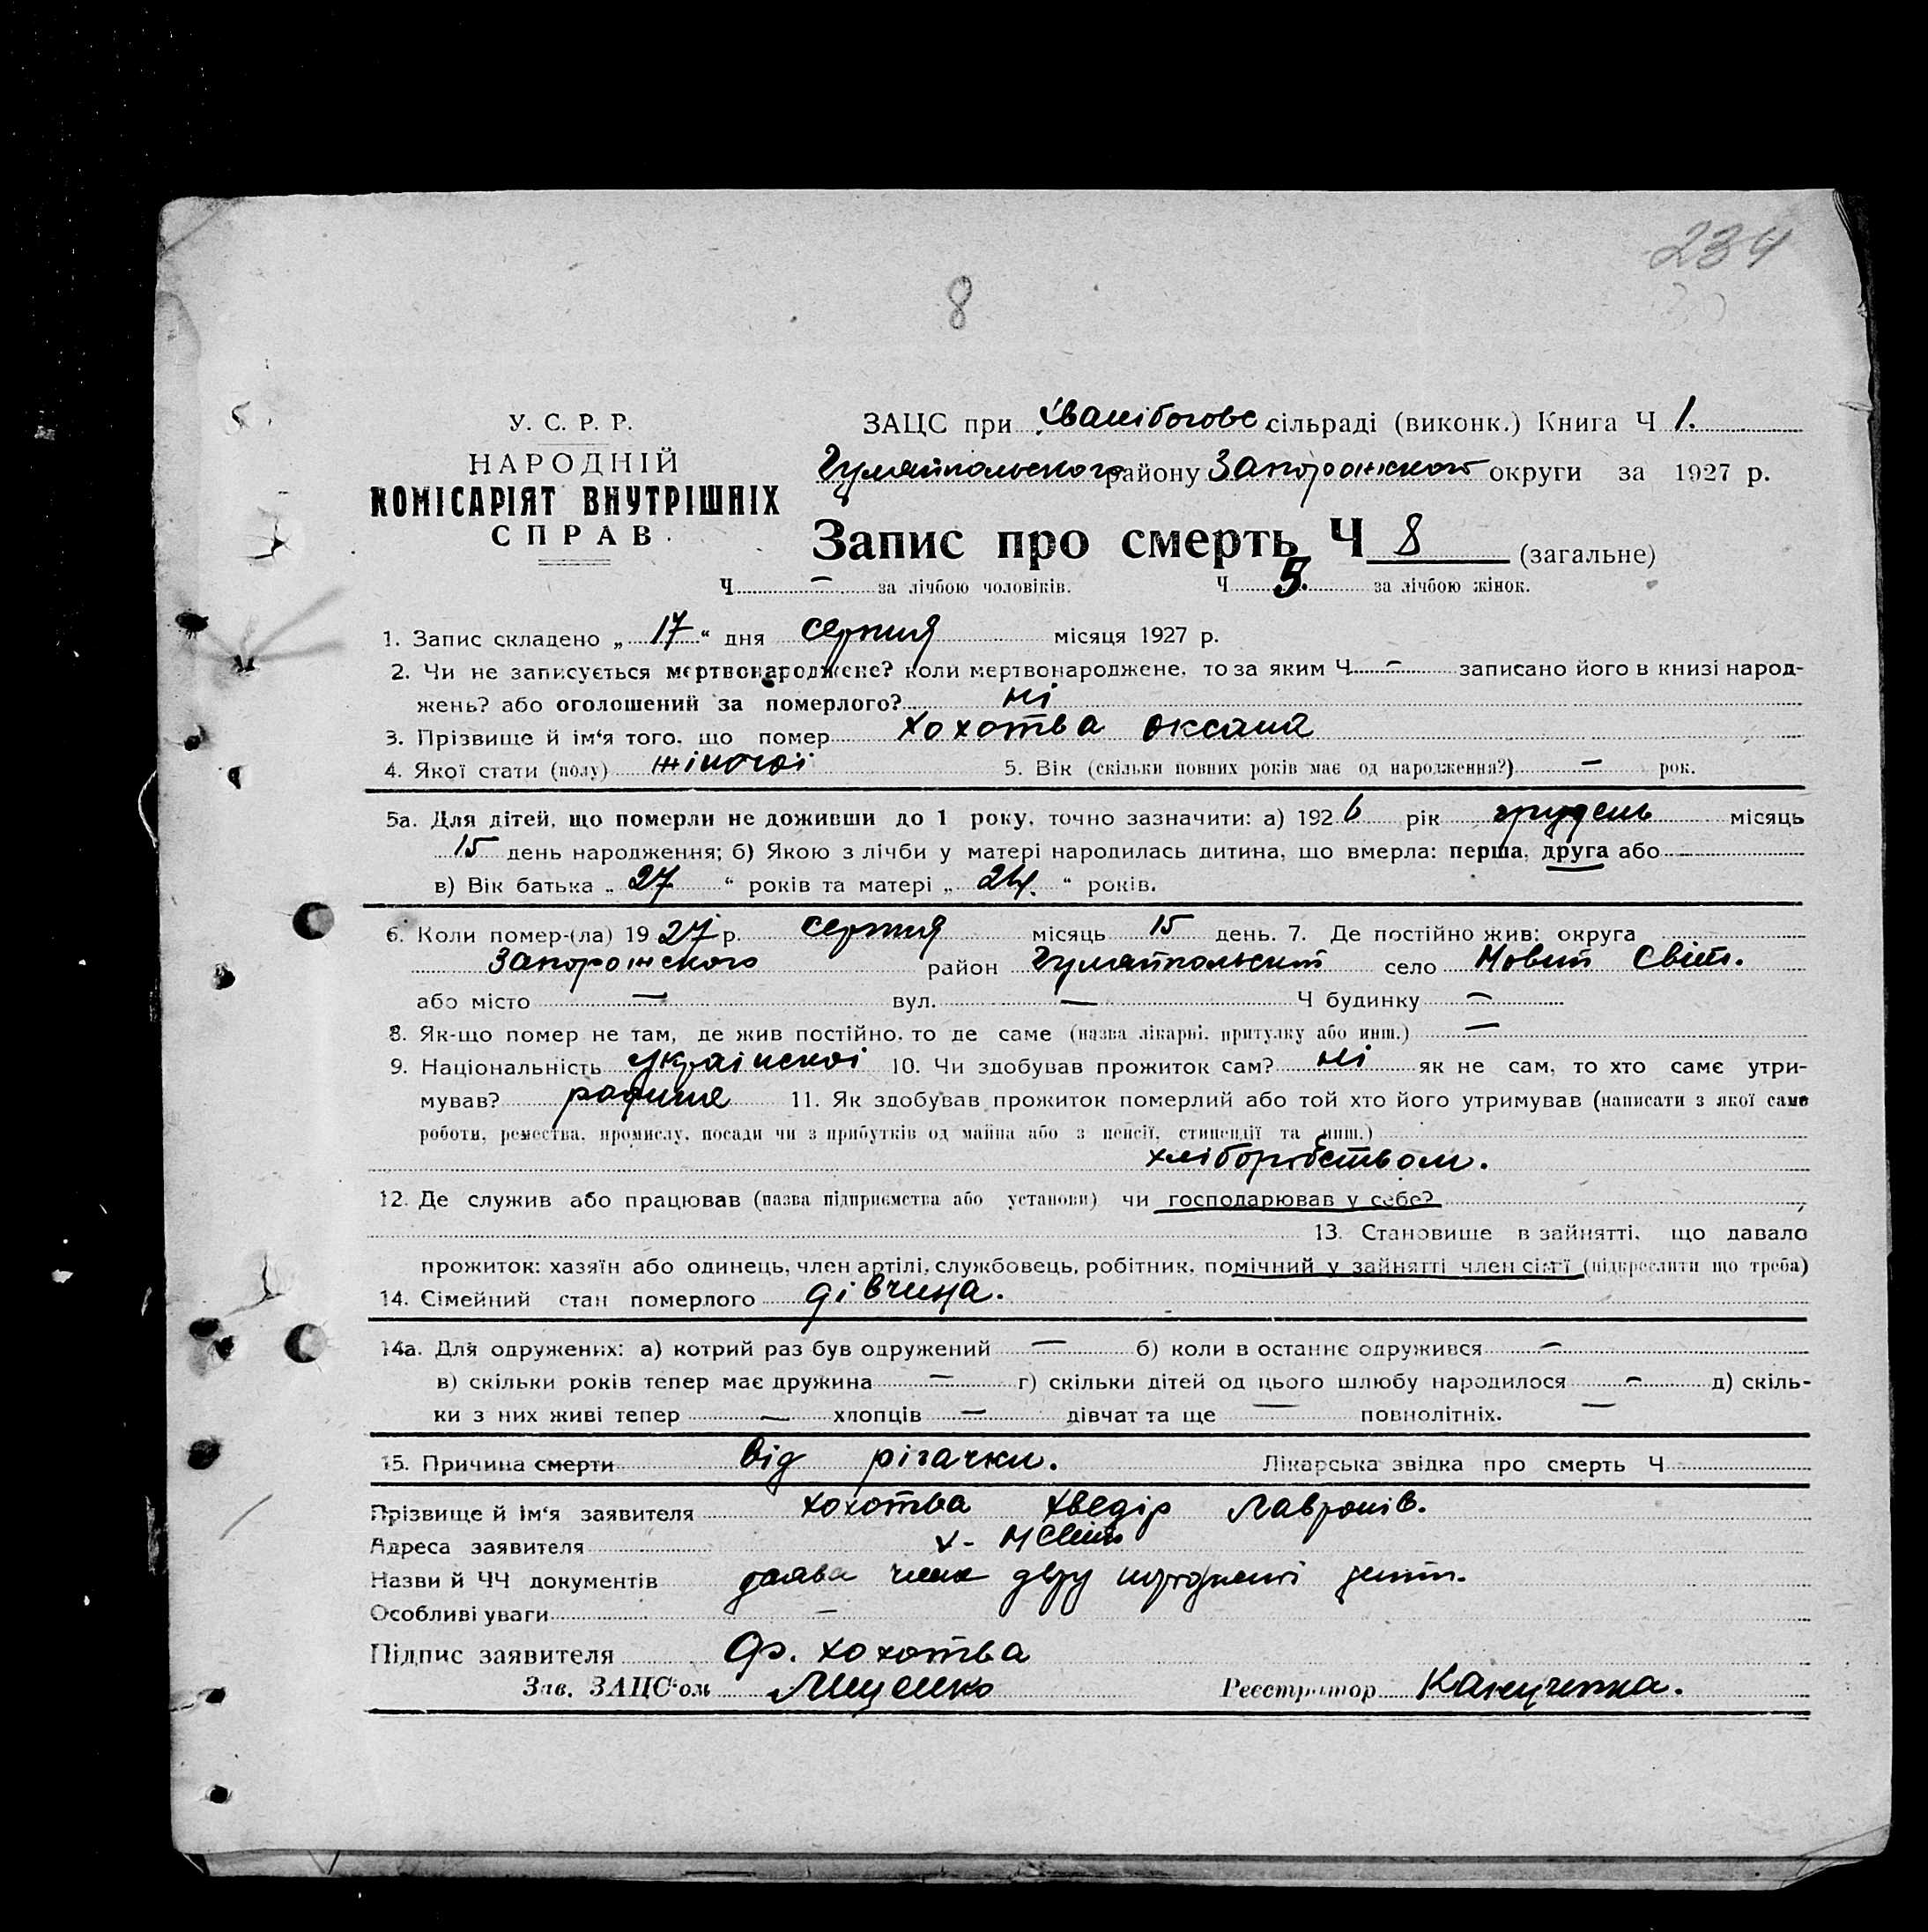 234
8
У. С. Р. Р.
НАРОДНІЙ
КОМІСАРІЯТ ВНУТРІШНІХ
СПРАВ.
ЗАЦС при сільраді (виконк.) Книга Ч 1.
Гуляйпольского району Запоріжского округи за 1927 р.
Запис про смерть Ч 8 (загальне)
Ч — за лічбою чоловіків. Ч 5. за лічбою жінок.
1. Запис складено „ 17 “ дня серпня місяця 1927 р.
2. Чи не записується мертвонароджене? коли мертвонароджене, то за яким Ч — записано його в книзі народ-
жень? або оголошений за померлого? ні
3. Прізвище й ім'я того, що помер Хохотва Оксана
4. Якої стати (полу) жіночої 5. Вік (скільки повних років має од народження?) — рок.
5а. Для дітей, що померли не доживши до 1 року, точно зазначити: а) 1926 рік грудень місяць
15 день народження; б) Якою з лічби у матері народилась дитина, що вмерла: перша, друга або
в) Вік батька „ 27 “ років та матері „ 24. “ років.
6. Коли помер-(ла) 1927 р. серпня місяць 15 день. 7. Де постійно жив: округа
Запоріжского район Гуляйпольский село Новий Світ.
або місто — вул. — Ч будинку —
8. Як-що помер не там, де жив постійно, то де саме (назва лікарні, притулку або инш.) —
9. Національність Украінскоі 10. Чи здобував прожиток сам? ні як не сам, то хто саме утри-
мував? родина 11. Як здобував прожиток померлий або той хто його утримував (написати з якої саме
роботи, ремества, промислу, посади чи з прибутків од майна або з пенсії, стипендії та инш.)
хліборобством.
12. Де служив або працював (назва підприємства або установи) чи господарював у себе?
13. Становище в зайнятті, що давало
прожиток: хазяїн або одинець, член артілі, службовець, робітник, помічний у зайнятті член сім'ї (підкреслити що треба)
14. Сімейний стан померлого дівчина.
14а. Для одружених: а) котрий раз був одружений — б) коли в останнє одружився —
в) скільки років тепер має дружина — г) скільки дітей од цього шлюбу народилося — д) скіль-
ки з них живі тепер — хлопців — дівчат та ще — повнолітніх. —
15. Причина смерти від рігачки. Лікарська звідка про смерть Ч
Прізвище й ім'я заявителя Хохотва Хведір Лавронів.
Адреса заявителя х- Н Світ
Назви й ЧЧ документів
Особливі уваги —
Підпис заявителя Ф. Хохотва
Зав. ЗАЦС'ом Реєстратор